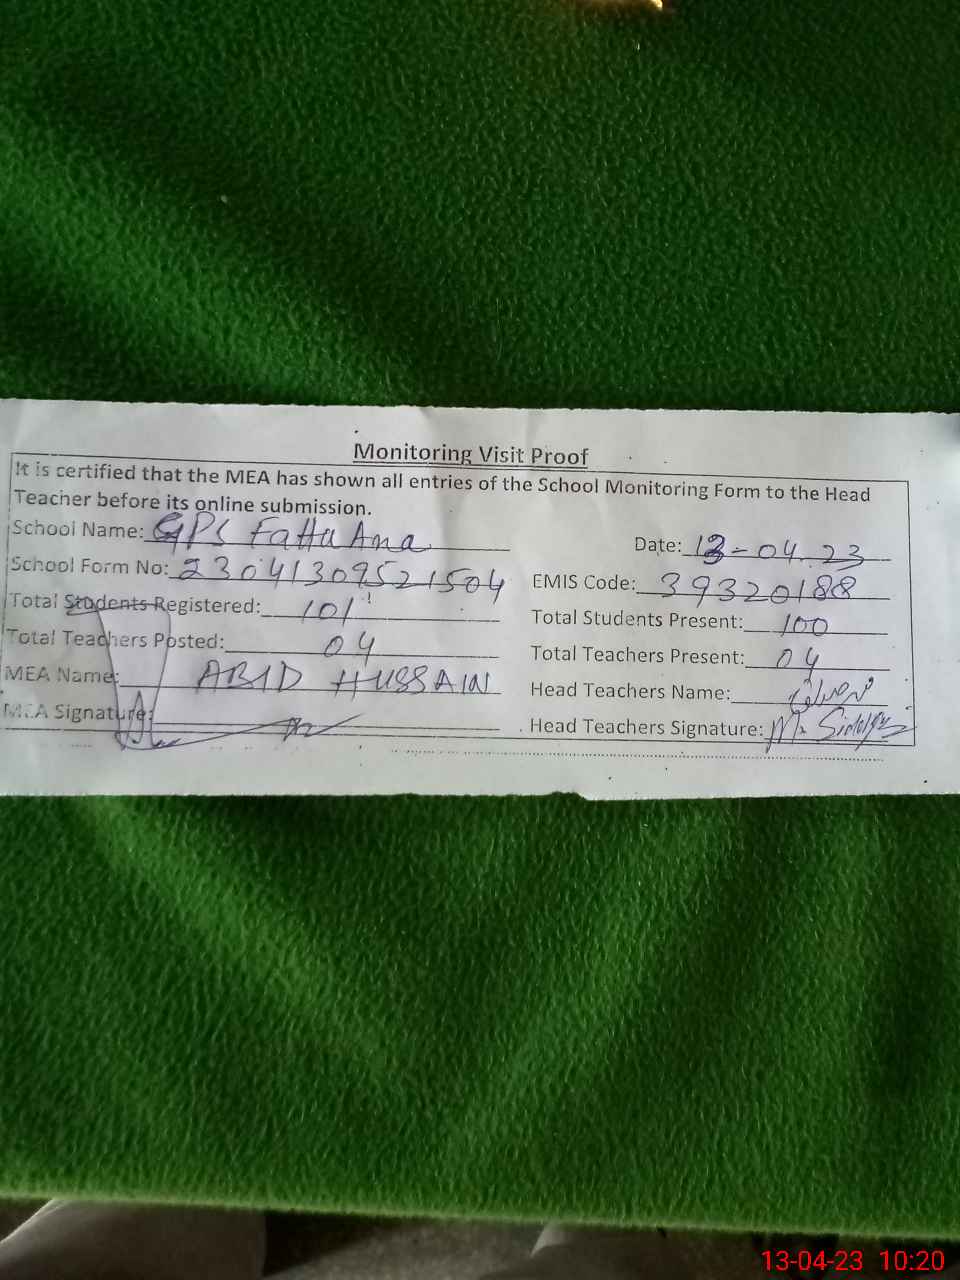 Monitoring Visit Proof
It is certified that the MEA has shown all entries of the School Monitoring Form to the Head
Teacher before its online submission.
School Name: GPS Fattu Ana
Date: 13-04.23
School Form No: 23041309521504
EMIS Code: 39320188
Total Students Registered: 101
Total Students Present: 100
Total Teachers Posted: 04
Total Teachers Present: 04
MEA Name: ABID HUSSAIN
Head Teachers Name:
MEA Signature:
Head Teachers Signature:
13-04-23 10:20